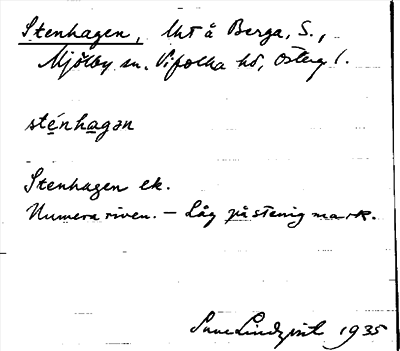 Stenhagen, Uht å Berga, S.,
Mjölby sn. Vifolka hd, Österg l.
sténhagən
Stenhagen ek.
Numera riven. — Låg på stenig mark.
Sune Lindqvist 1935